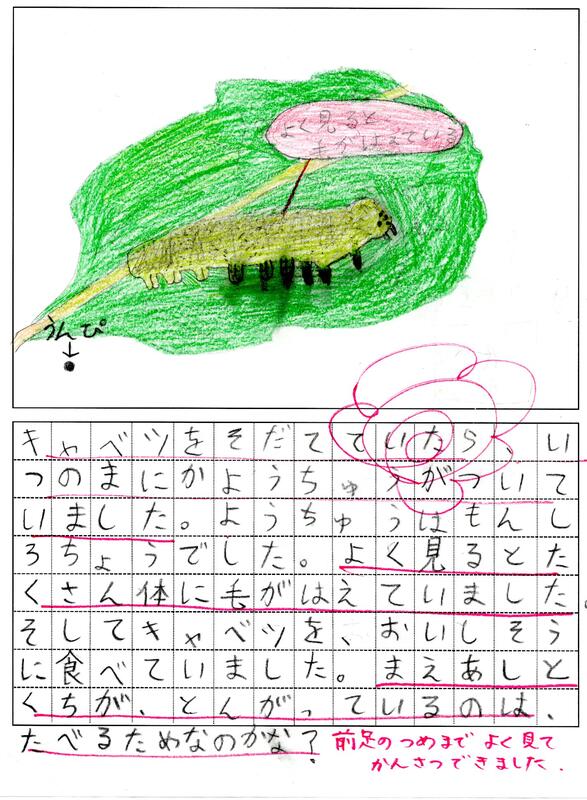 よく見ると
毛がはえている
うんぴ
キャベツをそだてていたら、い
つのまにかようちゅうがついて
いました。ようちゅうはもんし
ろちょうでした。よく見るとた
くさん体に毛がはえていました。
そしてキャベツを、おいしそう
に食べていました。まえあしと
くちが、とんがっているのは、
たべるためなのかな?
前足のつめまでよく見て
かんさつできました.